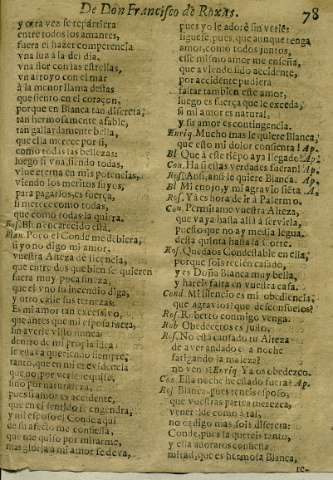 De Don Francisco de Roxas. 78
y cada vez se repartiera
entre todos los amantes,
fuera el hazer competencia
vna luz a la del dia,
vna flor con las estrellas,
vn arroyo con el mar
à la menor llama dellas
que siento en el coraçon,
porque en Blanca tan discreta,
tan hermosamente afable,
tan gallardamente bella,
que ella merece por si,
como todas las bellezas:
luego si vna, siendo todas,
viue eterna en mis potencias,
viendo los meritos suyos,
para pagarlos, es fuerça,
si merece como todas,
que como todas la quiera.
Ros. Bien encarecido està.
Blan. Poco el Conde me debiera,
si yo no digo mi amor,
vuestra Alteza dè licencia,
que entre dos que bien se quieren
fuera muy poca fineza,
que el vno su incendio diga,
y otro calle sus ternezas.
Es mi amor tan excessivo,
que antes que mi esposo fuera,
sin averle visto nunca
dentro de mi propia idea
le estava queriendo siempre,
tanto, que en mi era evidencia
que no por verle le quise,
sino por naturaleza,
pues si amor es accidente,
que en el sentido se engendra,
y mi esposo el Conde aqui
de su afecto me confiessa,
que me quiso por mirarme,
mas gloria a mi amor se deva,
pues yo le adorè sin verle:
sigue se pues, que aunque tenga
amor, como todos juntos,
esse mismo amor me enseña,
que aviendo sido accidente,
por accidente pudiera
faltar tambien esse amor,
luego es fuerça que le exceda,
si mi amor es natural,
y su amor es contingencia.
Enriq. Mucho mas le quiere Blanca,
que esto mi dolor consienta! Ap.
Bl. Que à este tiempo aya llegado! Ap.
Con. Ha si ellas verdades fueran! Ap.
Ros. Aun, ansi le quiere Blanca. Ap.
Bl. Mi enojo, y mi agravio sieta. A.
Ros. Ya es hora de ir à Palermo.
Con. Permitame vuestra Alteza,
que vaya hasta alli à servirla,
puesto que no ay media legua
desta quinta hasta la Corte.
Ros. Quedaos Condestable en ella,
porque sois recien casado,
y es Doña Blanca muy bella,
y hareis falta en vuestra casa.
Cond. Mi silencio es mi obediencia,
que agravios! que desconsuelos!
Ros. Roberto conmigo venga.
Rob. Obedeceros es justo.
Ros. No està cansado tu Alteza
de aver andado essa noche
fatigando la maleza?
no ven s? Enriq. Ya os obedezco.
Cõn. Ella noche he estado fuera? Ap.
Rej. Blanca, pues teneis esposo,
que vuestras partes merezca,
venerandole como à tal,
no os digo mas sois discreta:
Conde, pues la quereis tanto,
y ella adoraros confiessa,
mirad, que es hermosa Blanca,
re-